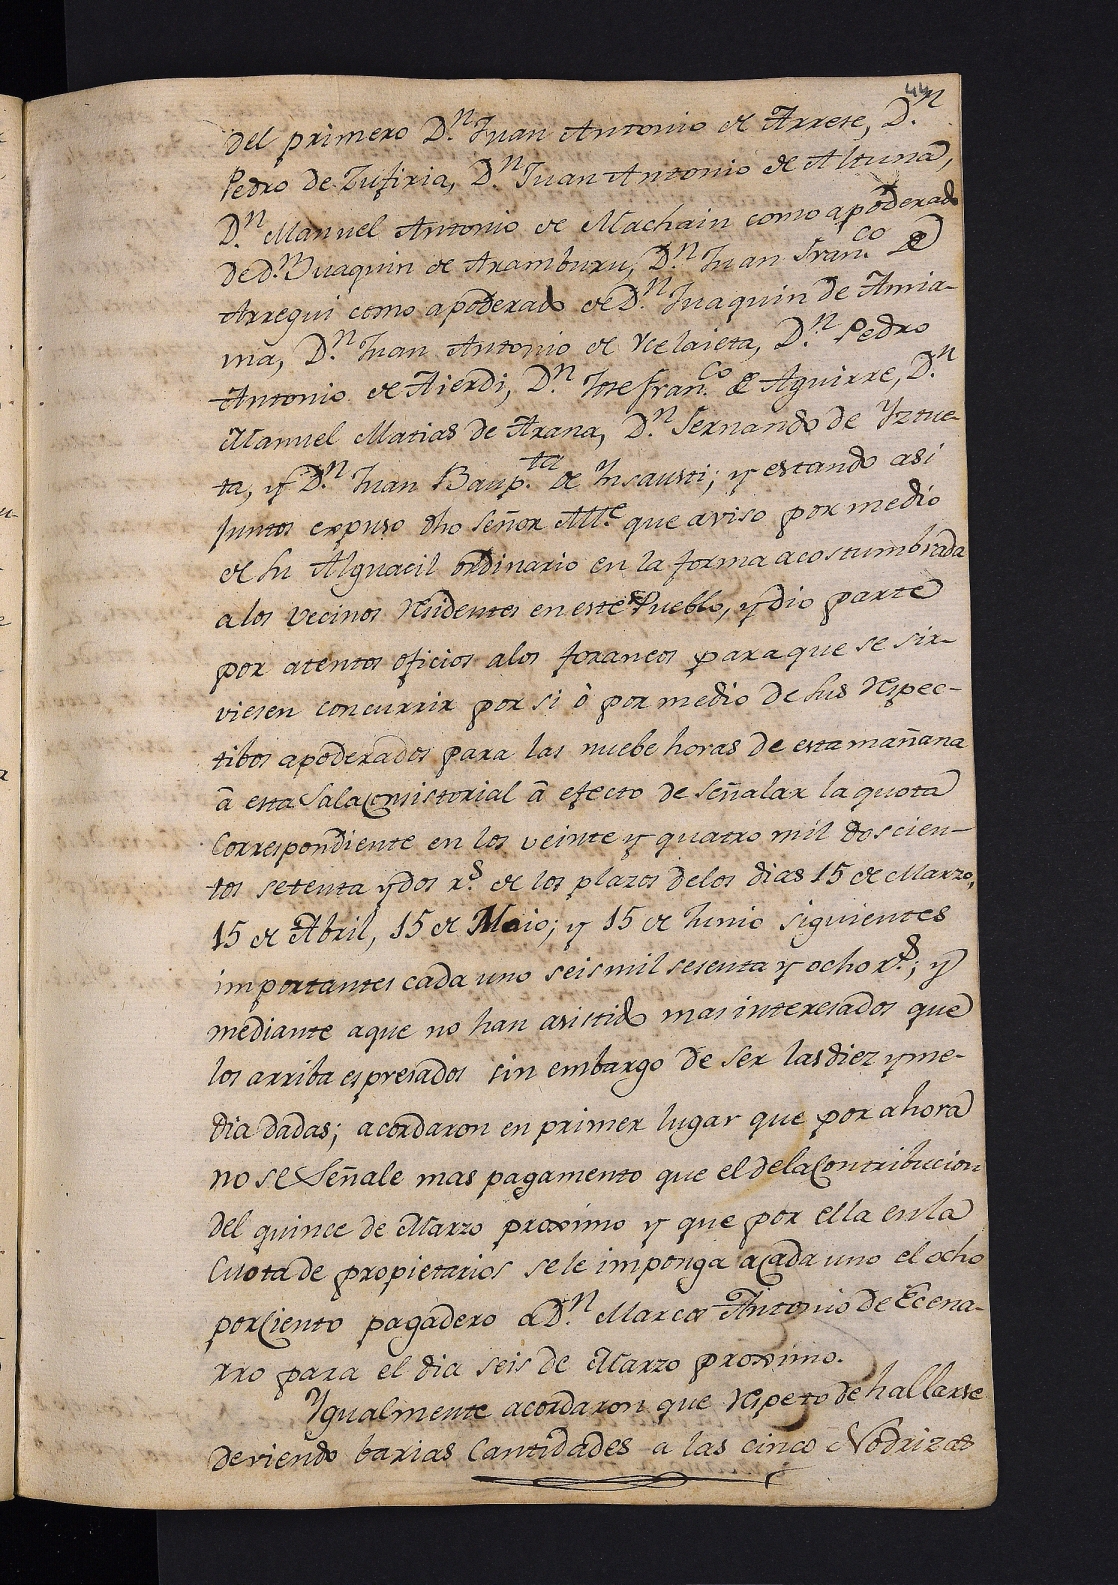 44
del primero D.n Juan Antonio de Arrese, D.n
Pedro de Zufiria, D.n Juan Antonio de Altuna,
D.n Manuel Antonio de Machain como apoderado
de d.n Juaquin de Aramburu, D.n Juan Fran.co de
Arregui como apoderado de D.n Juaquin de Amia-
ma, D.n Juan Antonio de Recaieta, D.n Pedro
Antonio de Aierdi, D.n Jose fran.co de Aguirre, D.n
Manuel Matias de Arana, D.n Fernando de Yztue-
ta, y D.n Juan Baup.ta de Insausti; y estando asi
juntos expuso dho Señor All.e que aviso por medio
de su Alguacil ordinario en la forma acostumbrada
a los vecinos residentes en este Pueblo, y dio parte
por atentos oficios a los foraneos para que se sir-
viesen concurrir por si ò por medio de sus respec-
tibos apoderados para las nuebe horas de esta mañana
â esta Sala Consistorial â efecto de señalar la quota
correspondiente en los veinte y quatro mil doscien-
tos setenta y dos r.s de los plazos de los dias 15 de Marzo,
15 de Abril, 15 de Maio; y 15 de Junio siguientes
importantes cada uno seis mil sesenta y ocho r.s; y
mediante a que no han asistido mas interesados que
los arriba espresados sin embargo de ser las diez y me-
dia dadas; acordaron en primer lugar que por ahora
no se señale mas pagamento que el de la Contribucion
del quince de Marzo proximo y que por ella en la
Cuota de propietarios se le imponga a cada uno el ocho
por ciento pagadero a D.n Marcos Antonio de Ecena-
rro para el dia seis de Marzo proximo.
Ygualmente acordaron que respeto de hallarse
deviendo barias Cantidades a las cinco Nodrizas